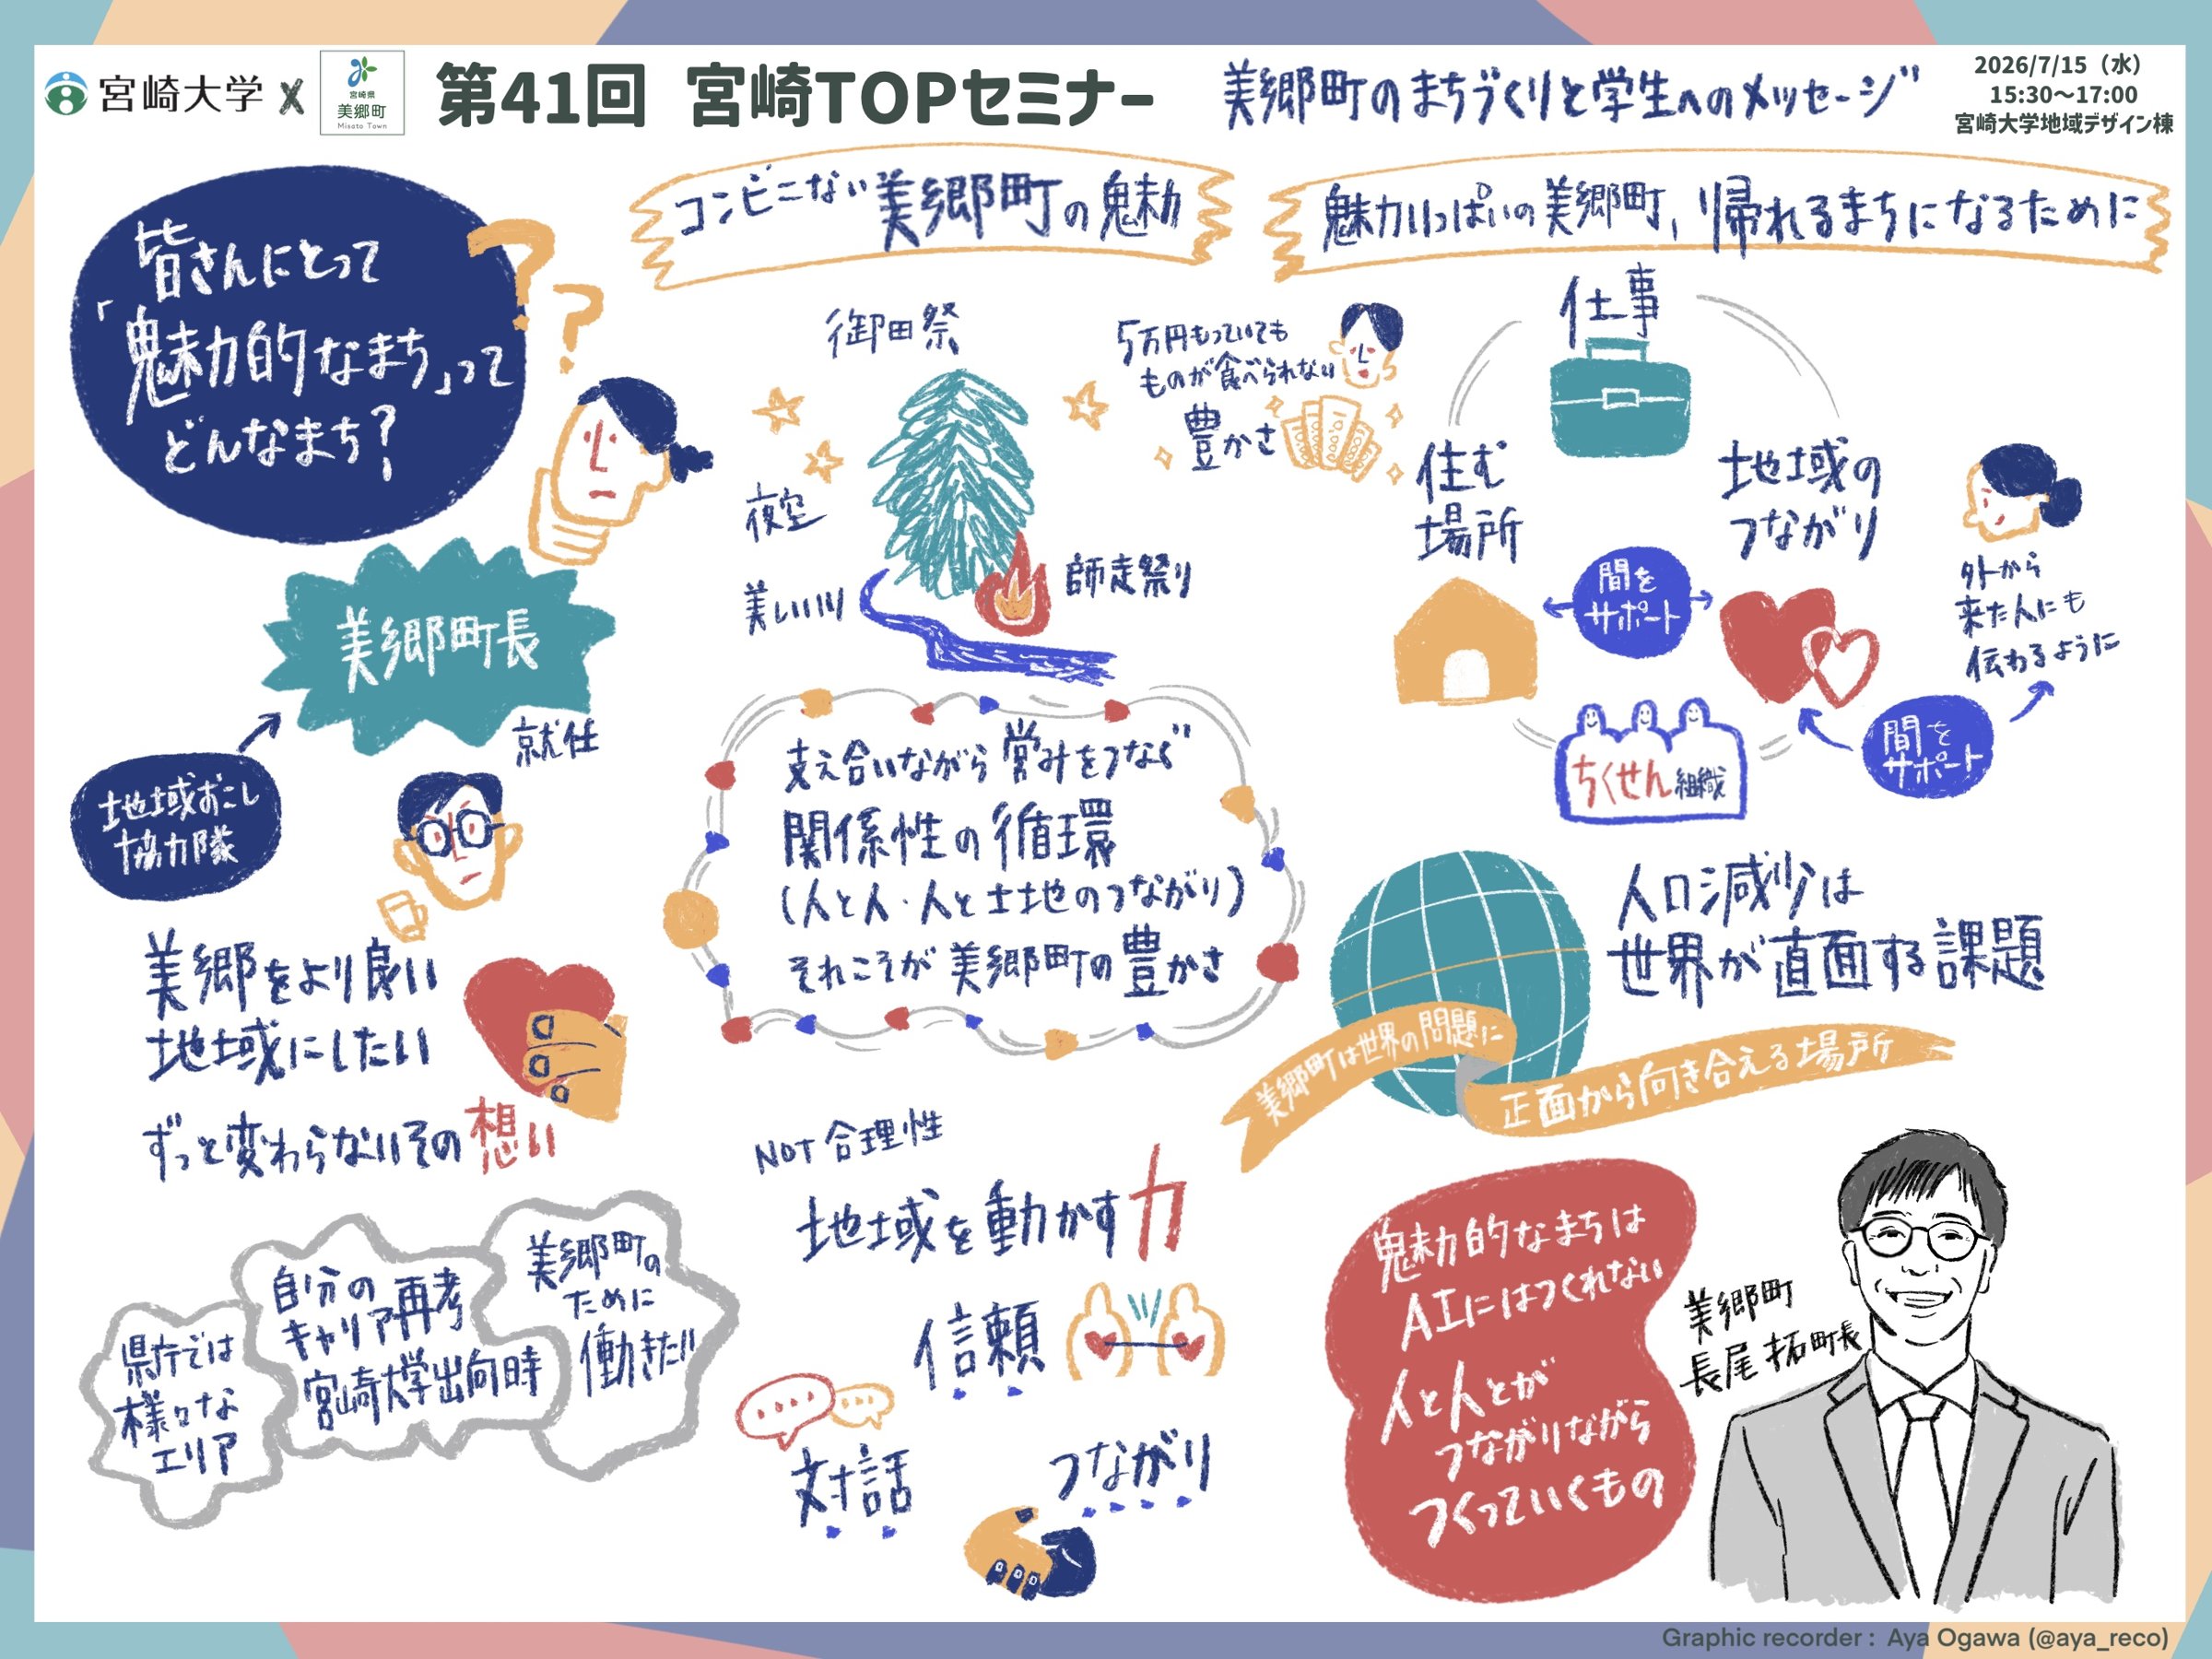 宮崎大学 X 宮崎県 美郷町 Misato Town
第41回 宮崎TOPセミナー
美郷町のまちづくりと学生へのメッセージ
2026/7/15（水）
15:30〜17:00
宮崎大学地域デザイン棟
皆さんにとって
「魅力的なまち」って
どんなまち?
??
美郷町長
就任
地域おこし
協力隊
美郷をより良い
地域にしたい
ずっと変わらないその想い
県庁では
様々な
エリア
自分の
キャリア再考
宮崎大学出向時
美郷町の
ために
働きたい!
コンビニない美郷町の魅力
御田祭
夜空
美しい川
師走祭り
5万円もっていても
ものが食べられない
豊かさ
支え合いながら営みをつなぐ
関係性の循環
(人と人・人と土地のつながり)
それこそが美郷町の豊かさ
NOT 合理性
地域を動かす力
信頼
対話
つながり
魅力いっぱいの美郷町、帰れるまちになるために
仕事
住む
場所
地域の
つながり
間を
サポート
ちくせん組織
間を
サポート
外から
来た人にも
伝わるように
人口減少は
世界が直面する課題
美郷町は世界の問題に
正面から向き合える場所
魅力的なまちは
AIにはつくれない
人と人とが
つながりながら
つくっていくもの
美郷町
長尾 拓町長
Graphic recorder : Aya Ogawa (@aya_reco)